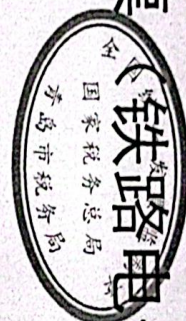 （铁路电
国家税务总局
青岛市税务局